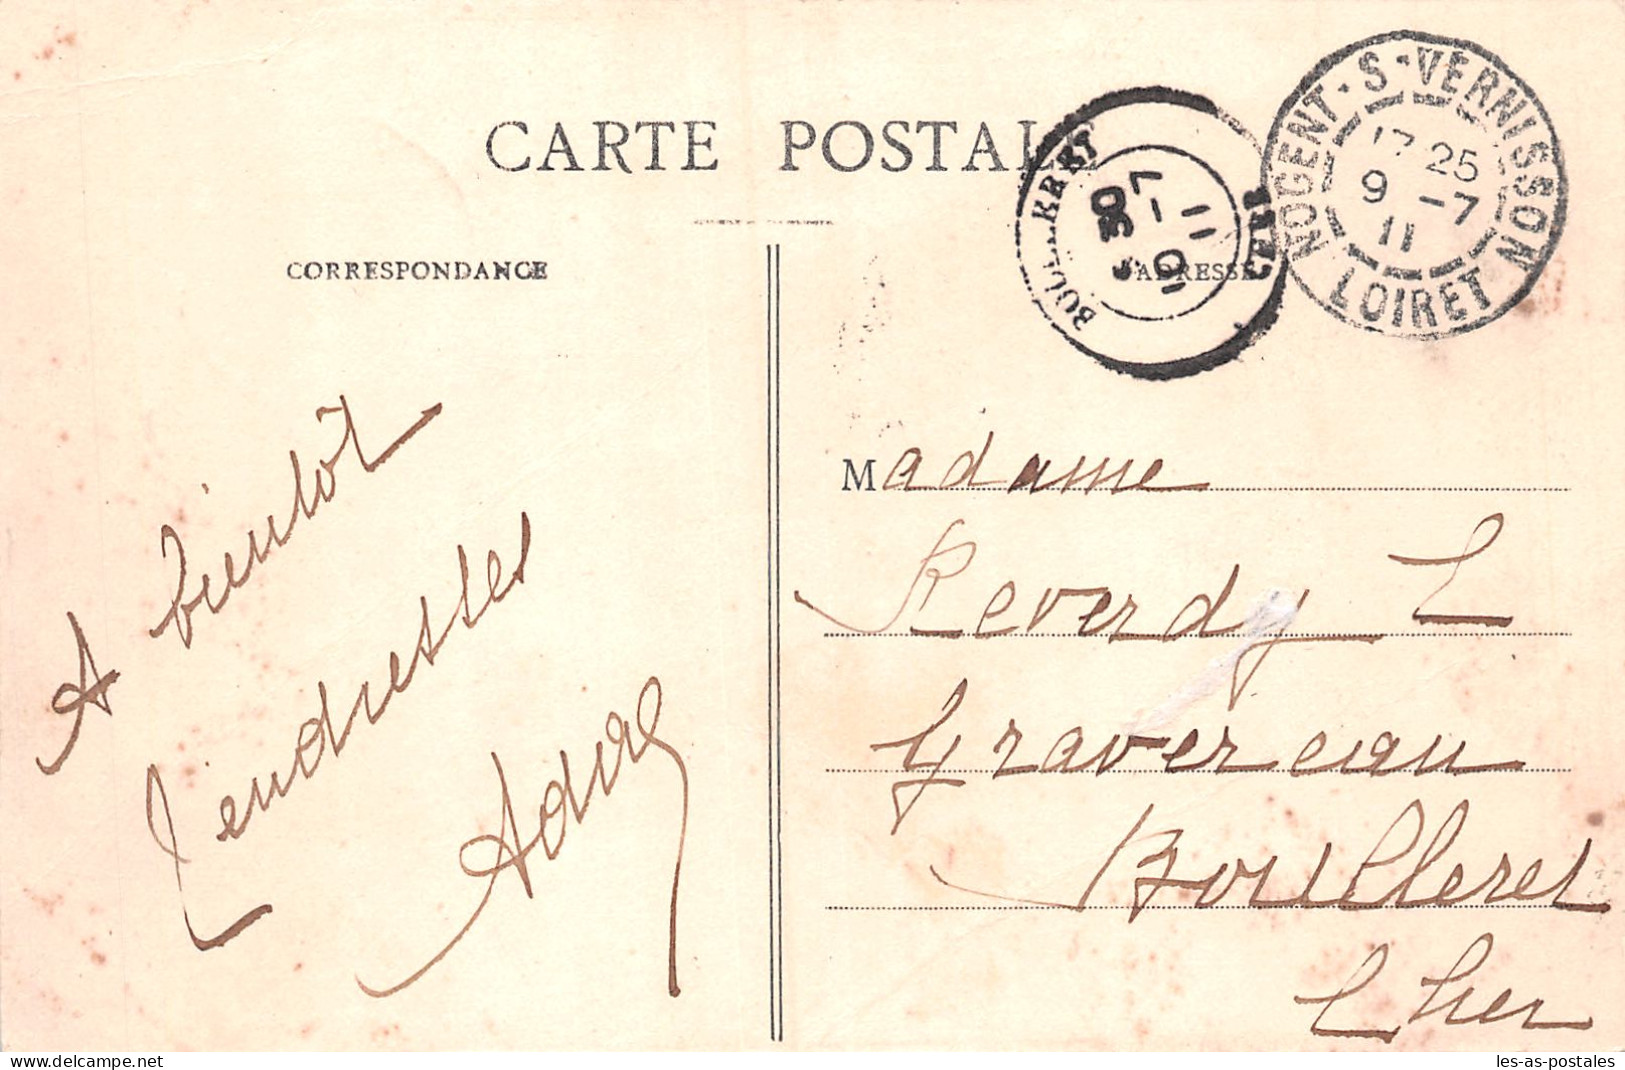 CARTE POSTALE
CORRESPONDANCE
L'ADRESSE
BOULLERET CHER
30
10 -7
11
NOGENT-S-VERNISSON LOIRET
17 25
9 -7
11
A bientôt
Tendresses
Madame
Reverdy L
Gravereau
Boulleret
Cher
delcampe.net
les-as-postales